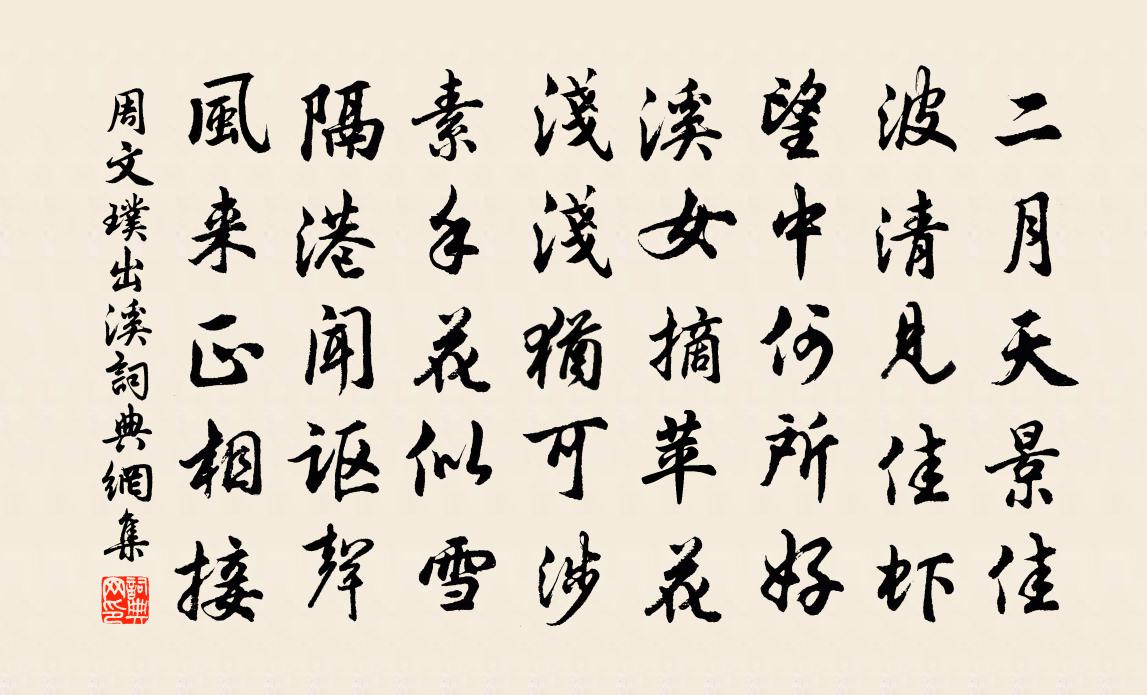 二月天景佳
波清見佳虾
望中何所好
溪女摘苹花
淺淺猶可涉
素手花似雪
隔港聞謳聲
風来正相接
周文璞出溪詞典網集
詞典網印